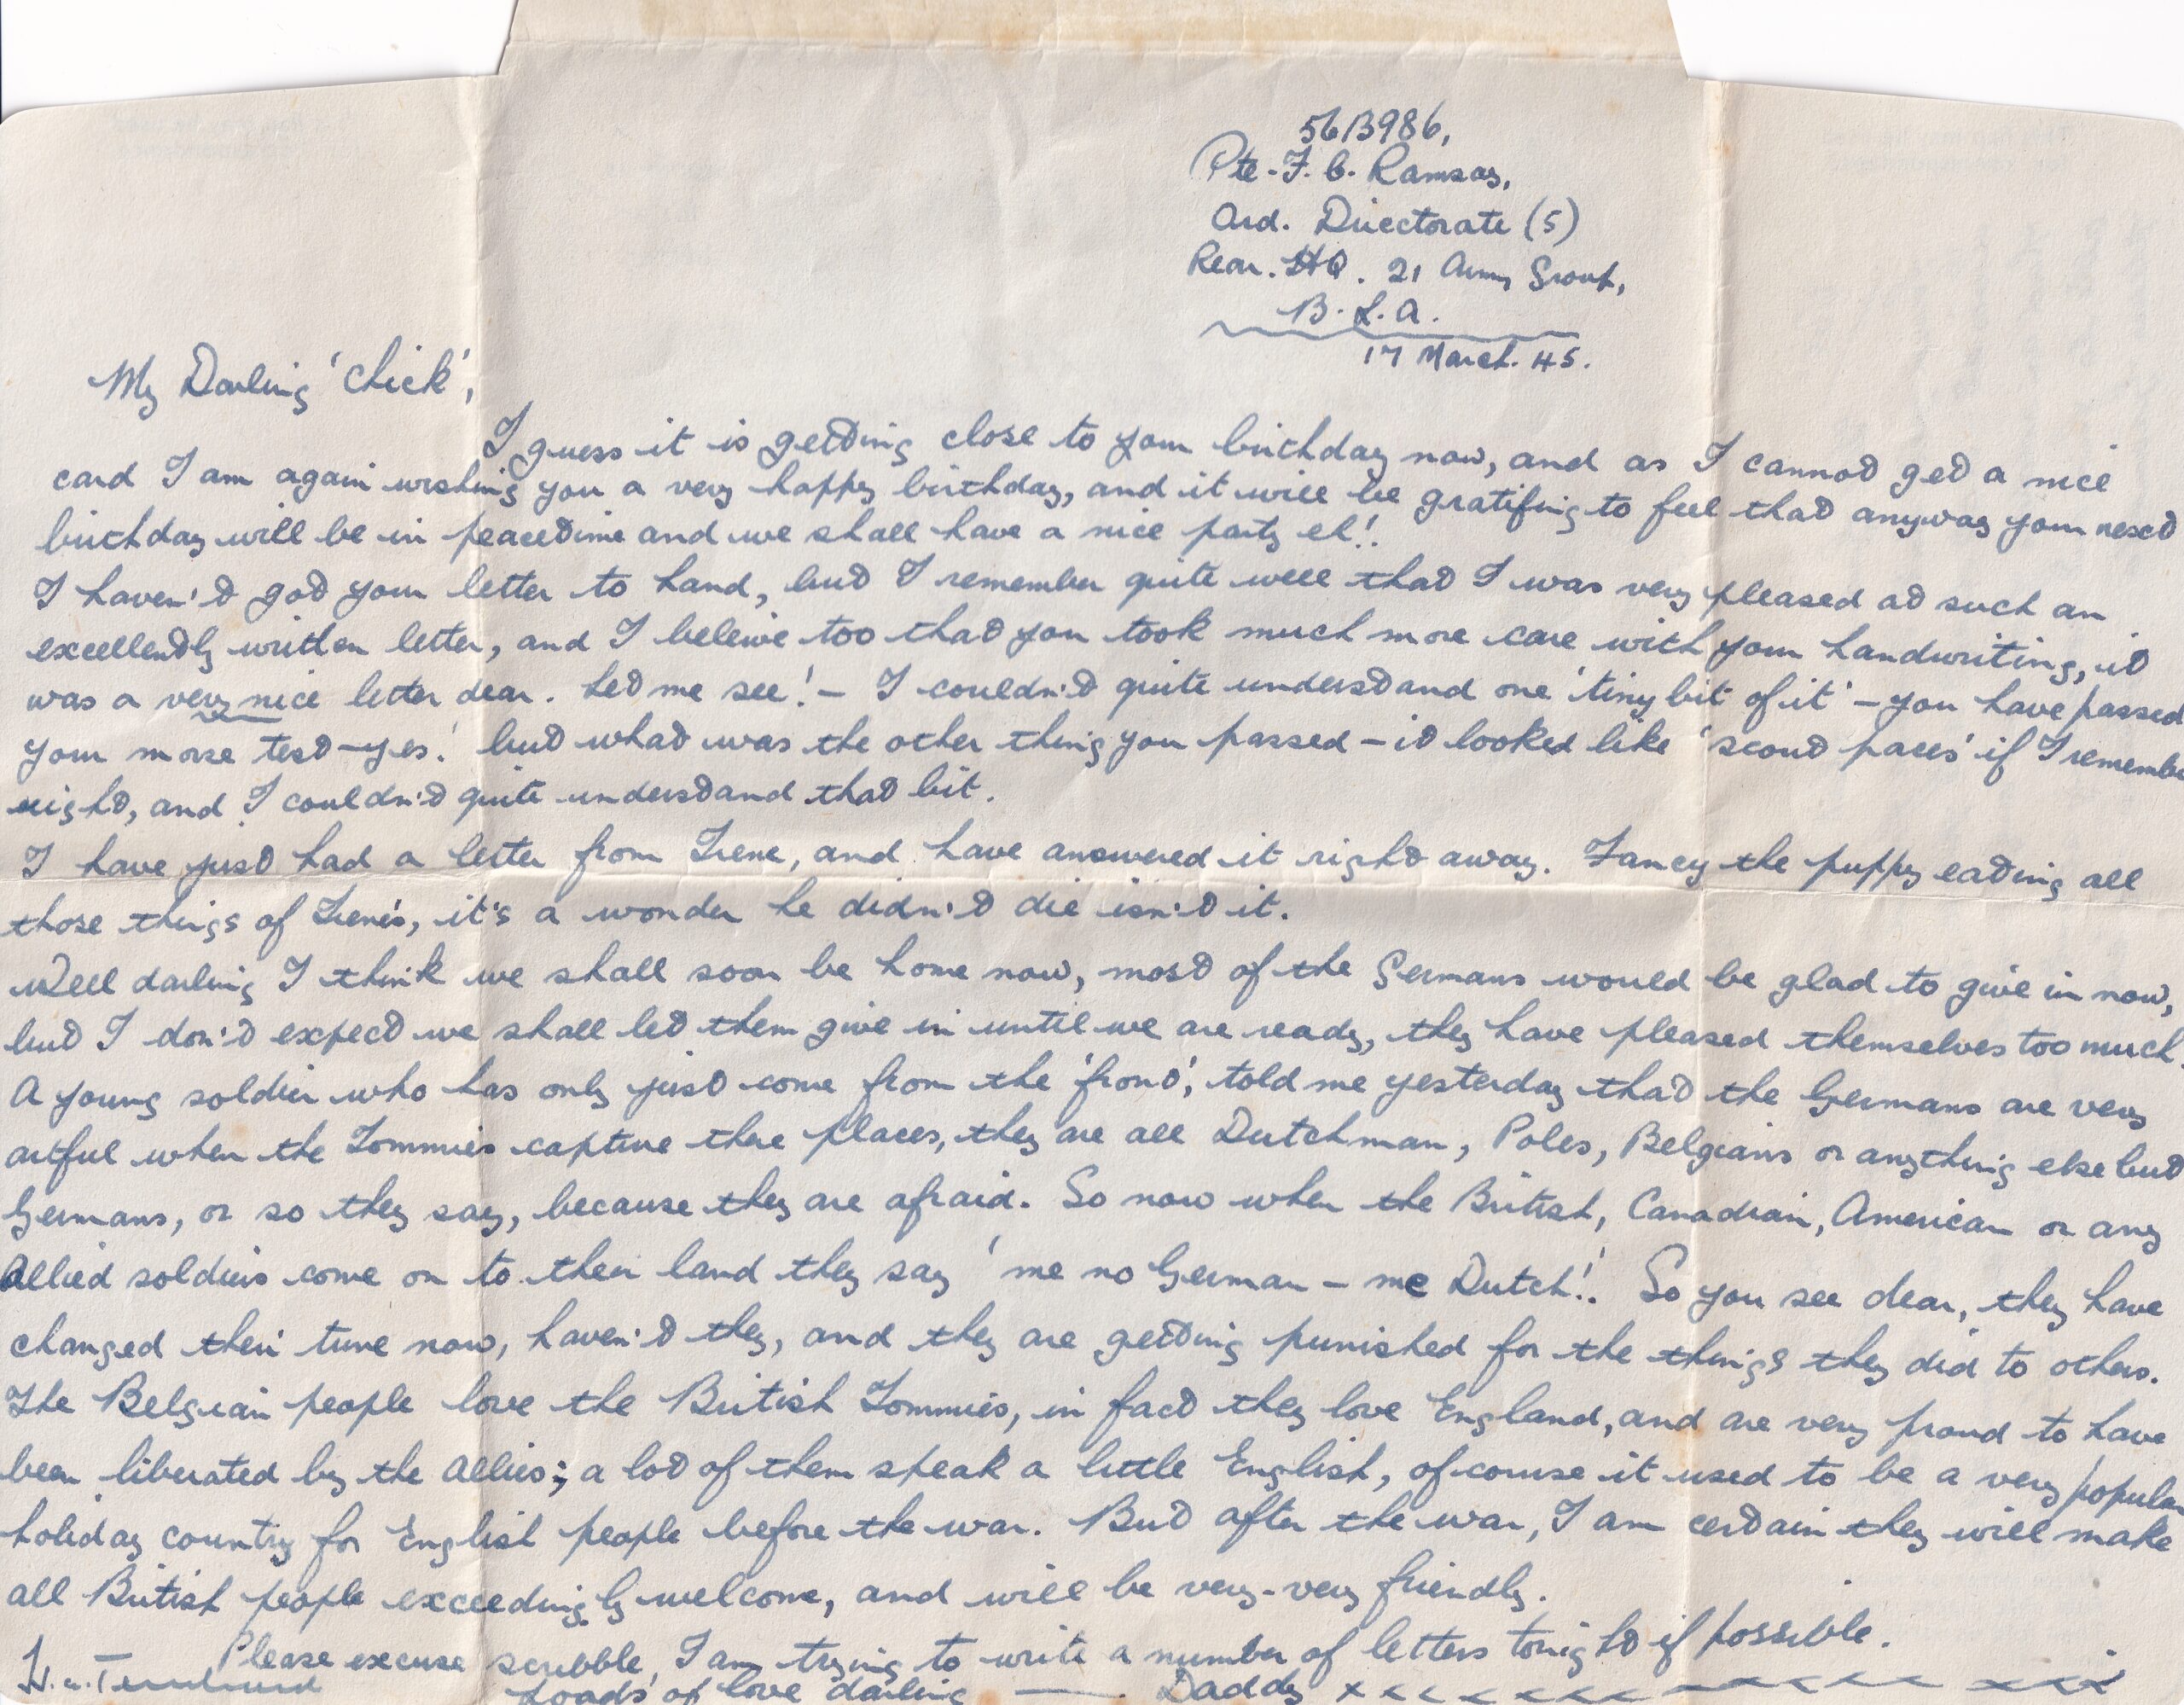 5613986,
Pte. F. C. Ramsay,
Ord. Directorate (5)
Rear. HQ. 21 Army Group,
B. L. A.
17 March. 45.
My Darling 'Chick',
I guess it is getting close to your birthday now, and as I cannot get a nice
card I am again wishing you a very happy birthday, and it will be gratifing to feel that anyway your next
birthday will be in peacetime and we shall have a nice party eh!.
I haven't got your letter to hand, but I remember quite well that I was very pleased at such an
excellently written letter, and I beleive too that you took much more care with your handwriting, it
was a very nice letter dear. Let me see! – I couldn't quite understand one 'tiny bit of it' – you have passed
your morse test – yes! but what was the other thing you passed – it looked like 'scout paces' if I remember
right, and I couldn't quite understand that bit.
I have just had a letter from Irene, and have answered it right away. Fancy the puppy eating all
those things of Irene's, it's a wonder he didn't die isn't it.
Well darling I think we shall soon be home now, most of the Germans would be glad to give in now,
but I don't expect we shall let them give in until we are ready, they have pleased themselves too much.
A young soldier who has only just come from the 'front', told me yesterday that the Germans are very
artful when the Tommies capture there places, they are all Dutchman, Poles, Belgians or anything else but
Germans, or so they say, because they are afraid. So now when the British, Canadian, American or any
Allied soldiers come on to their land they say 'me no German – me Dutch!'. So you see dear, they have
changed their tune now, haven't they, and they are getting punished for the things they did to others.
The Belgian people love the British Tommies, in fact they love England, and are very proud to have
been liberated by the Allies; a lot of them speak a little English, of course it used to be a very popular
holiday country for English people before the war. But after the war, I am certain they will make
all British people exceedingly welcome, and will be very-very friendly.
Please excuse scribble, I am trying to write a number of letters tonight if possible.
Loads of love darling —— Daddy x x x x x x x x x x x x x